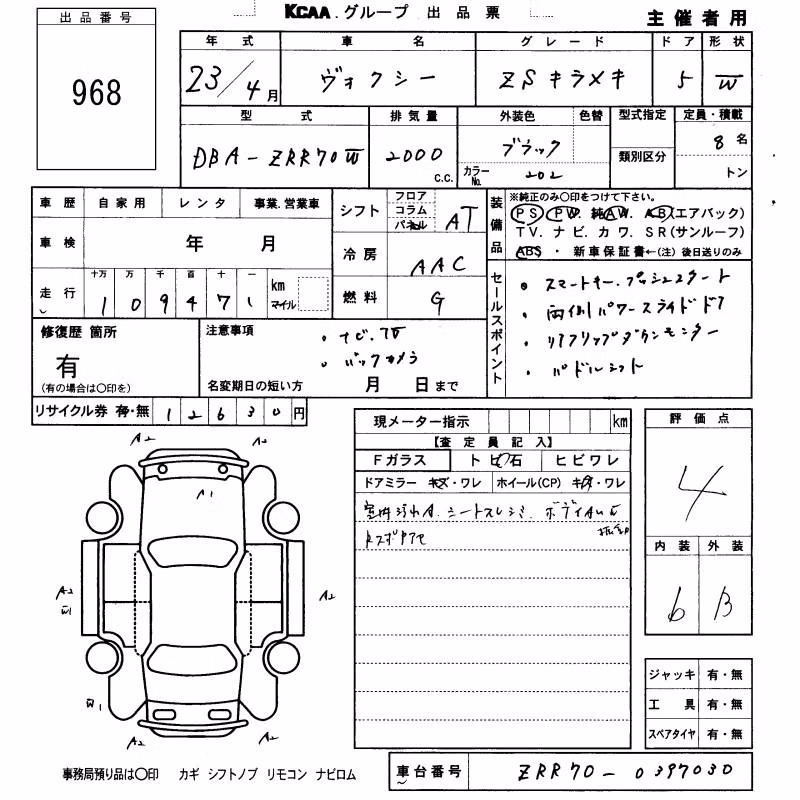 KCAA グループ 出品票 主催者用
出品番号
968
年式 車名 グレード ドア 形状
23/4月 ヴォクシー ZSキラメキ 5 W
型式 排気量 外装色 色替 型式指定 定員・積載
DBA-ZRR70W 2000 C.C. ブラック 類別区分 8名
カラーNo. 202 トン
車歴 自家用 レンタ 事業.営業車
車検 年 月
走行 十万 万 千 百 十 一 km マイル
109471
シフト フロア コラム パネル AT
冷房 AAC
燃料 G
装備品 ※純正のみ〇印をつけて下さい。
PS. PW. 純AW. AB(エアバック)
TV. ナビ. カワ. SR(サンルーフ)
ABS ・ 新車保証書←(注)後日送りのみ
セールスポイント
・スマートキー.プッシュスタート
・両側パワースライドドア
・リアフリップダウンモニター
・パドルシフト
修復歴 箇所
有
(有の場合は〇印を)
注意事項
・ナビ.TV
・バックカメラ
名変期日の短い方 月 日まで
リサイクル券 有・無 12630円
現メーター指示 km
【査定員記入】
Fガラス トビ石 ヒビワレ
ドアミラー キズ・ワレ ホイール(CP) キズ・ワレ
室内汚れA.シートスレシミ.ボディAUW
評価点
4
内装 外装
6 B
A2 A2
A1
A2
W1
A2
W1
A2 A2
ジャッキ 有・無
工具 有・無
スペアタイヤ 有・無
事務局預り品は〇印 カギ シフトノブ リモコン ナビロム
車台番号 ZRR70-0397030